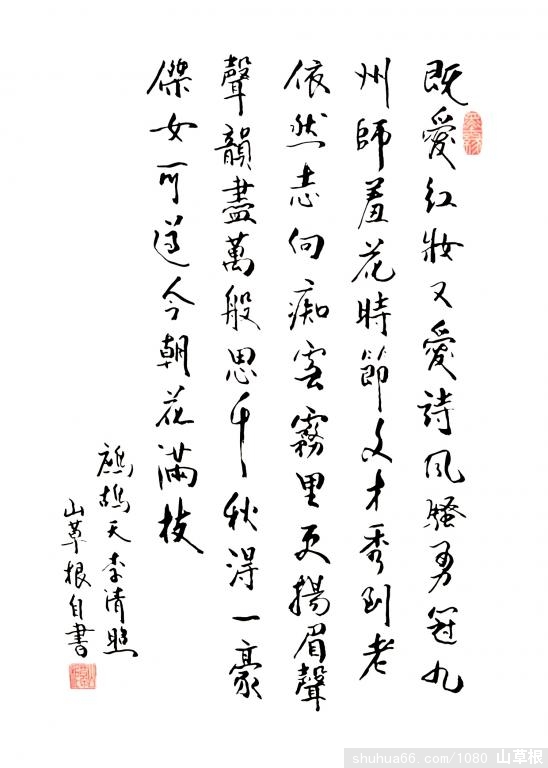 既愛红妝又愛詩风騷勇冠九
州師羞花時節文才秀到老
依然志向痴雲霧里更揚眉聲
聲韻盡萬般思千秋得一豪
傑女可道今朝花滿枝
鹧鸪天李清照
山草根自書
shuhua66.com/1080 山草根